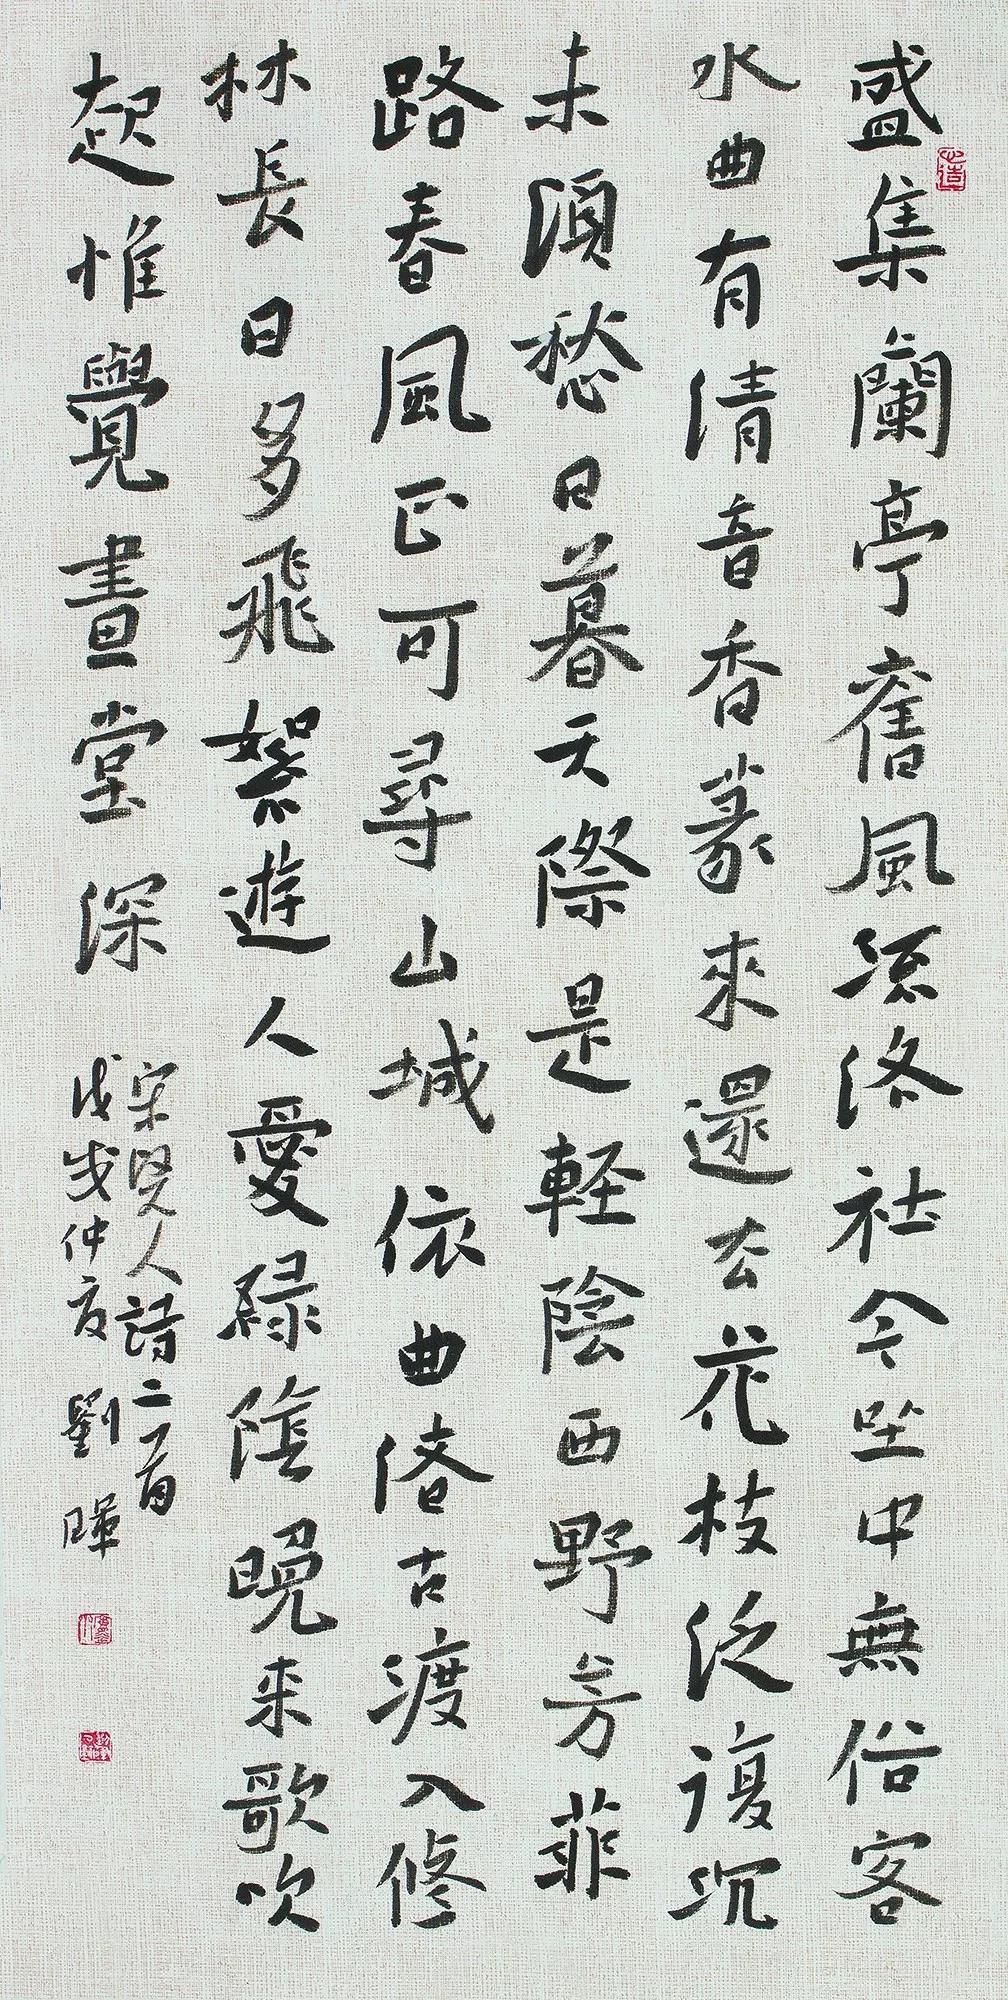 盛集蘭亭舊風流洛社今坐中無俗客
水曲有清音香篆來還去花枝泛復沉
未須愁日暮天際是軽陰西野芳菲
路春風正可尋山城依曲渚古渡入修
林長日多飛絮遊人愛綠陰晚来歌吹
起惟覺畫堂深
宋賢人詩二首
戊戌仲夏 劉暉